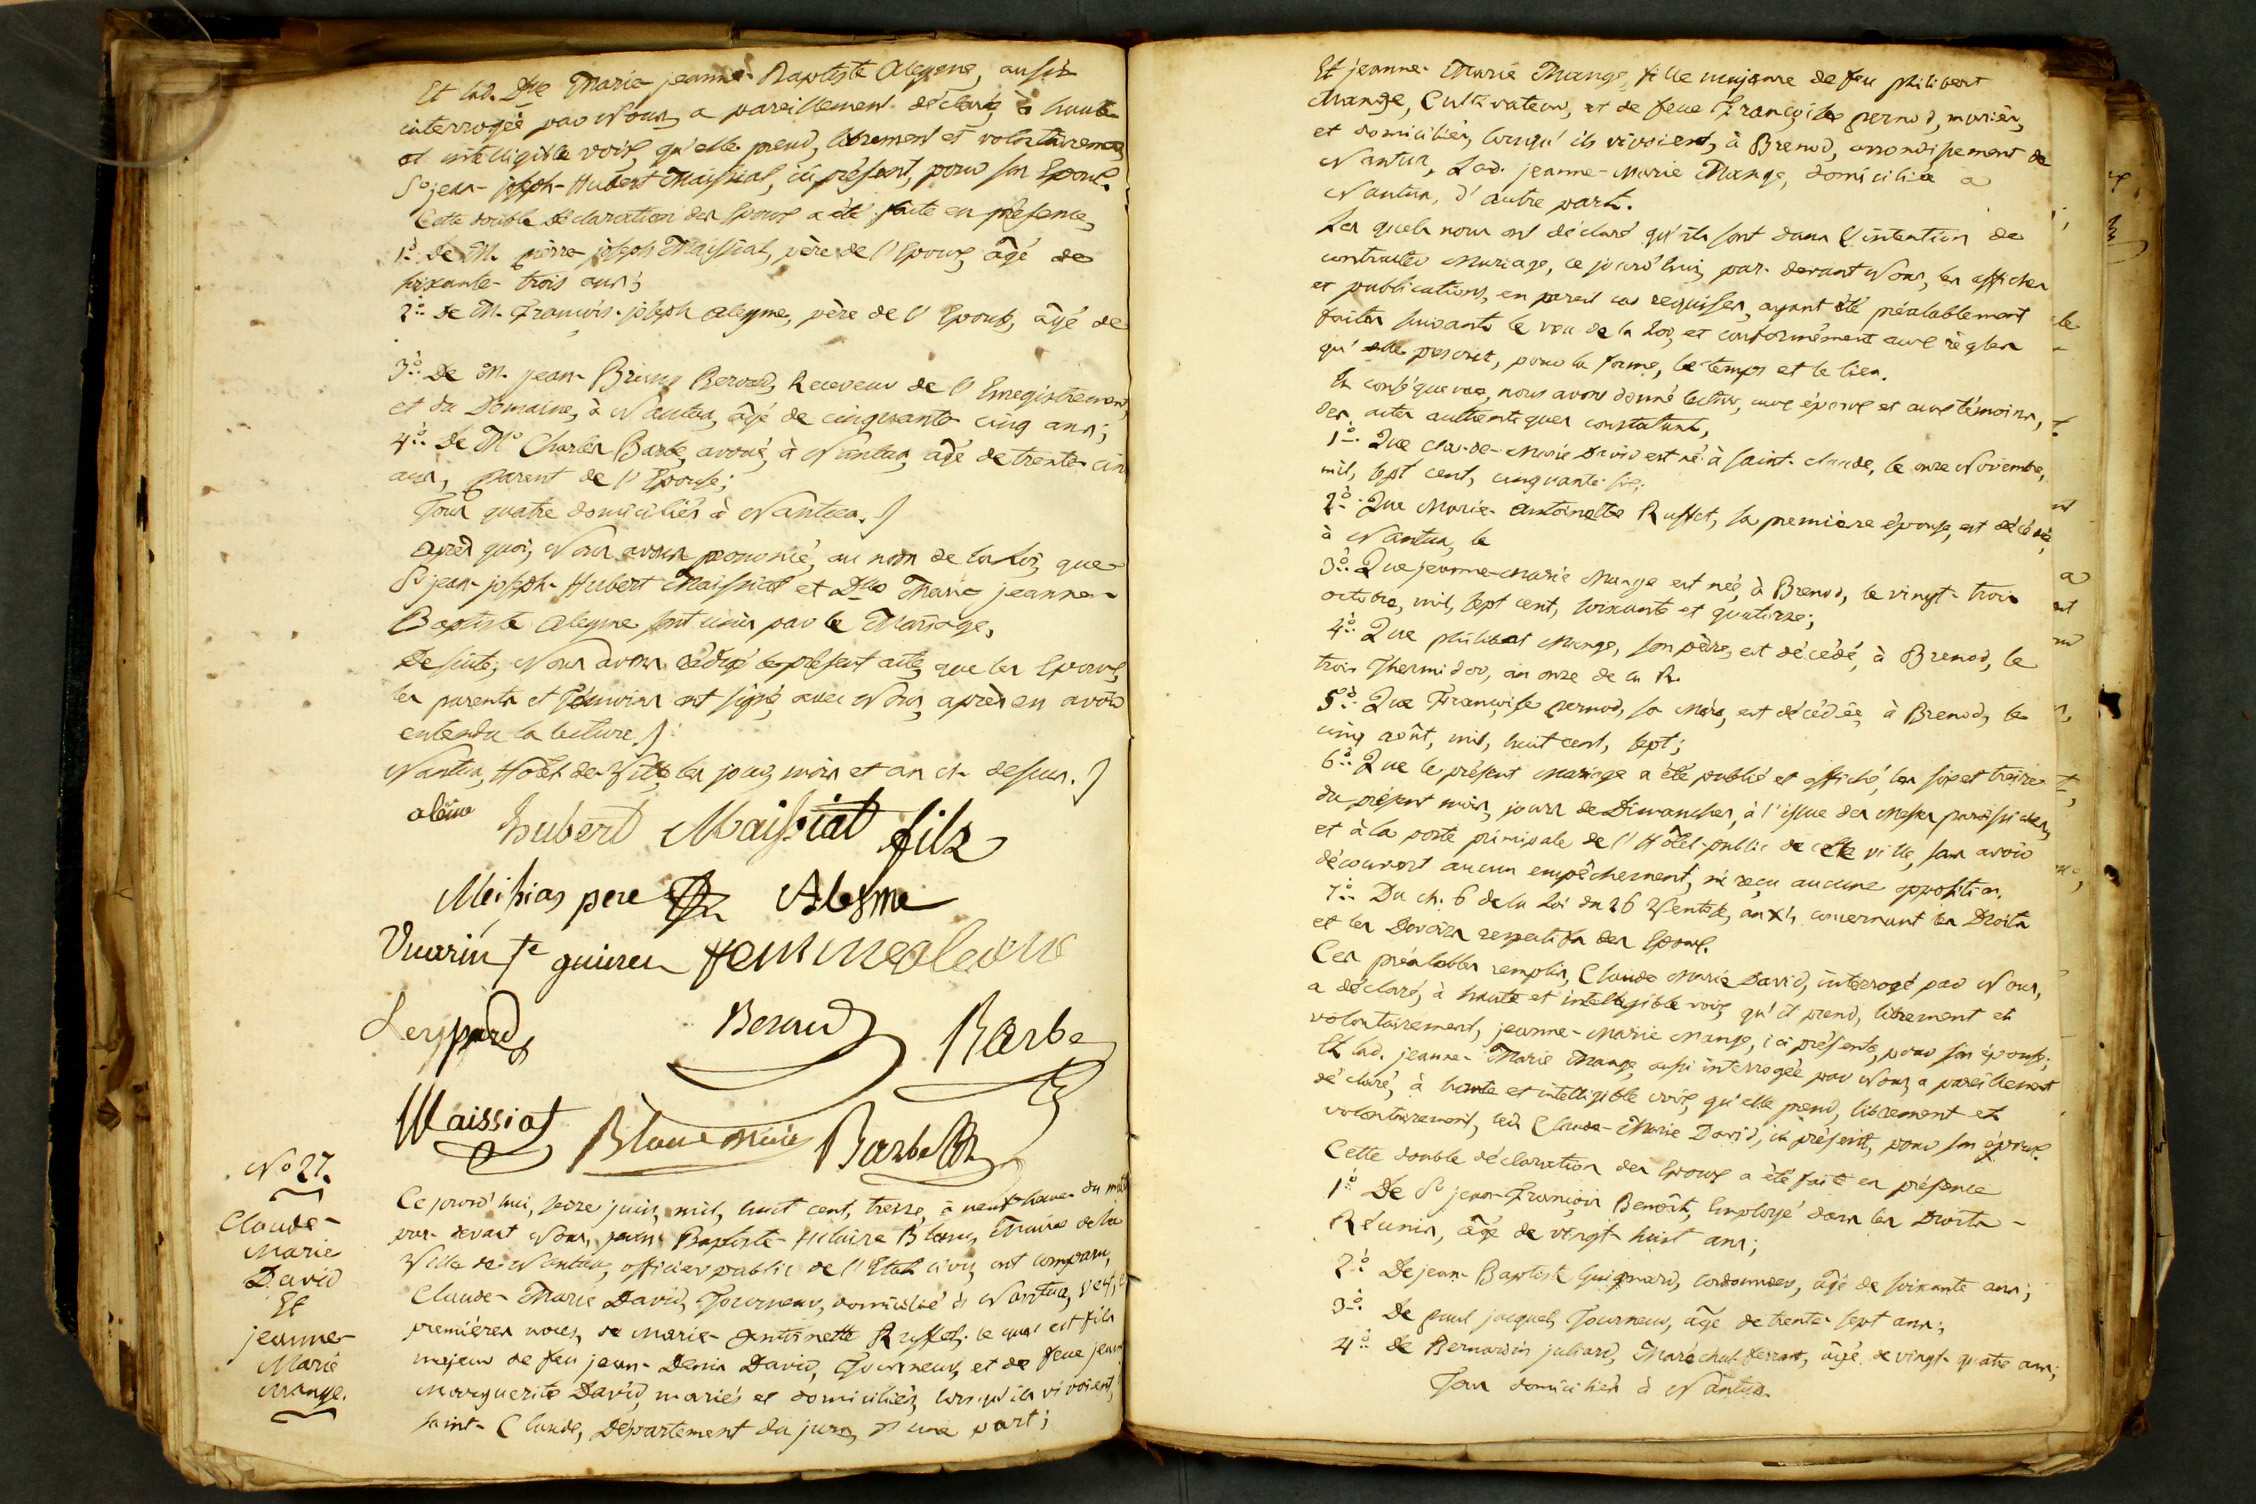 Et lad. Dlle Marie-jeanne-Baptiste Aleyme, aussi
interrogée par Nous, a pareillement déclaré, à haute
et intelligible voix, qu'elle prend, librement et volontairement,
Sr jean-joseph-Hubert Maissiat, ici présent, pour son Epoux.
Cette double déclaration des Epoux a été faite en présence,
1o. De M. pierre joseph Maissiat, père de l'Epoux, âgé de
soixante-trois ans;
2o. De M. François-joseph Aleyme, père de l'Epouse, âgé de
3o. De M. jean- Berard, Receveur de l'Enregistrement,
et du Domaine, à Nantua, âgé de cinquante cinq ans;
4o. De Me Charles Barbe, avoué, à Nantua, âgé de trente cinq
ans, parent de l'Epouse;
Tous quatre domiciliés à Nantua.
Après quoi, Nous avons prononcé, au nom de la Loi, que
Sr jean-joseph-Hubert Maissiat et Dlle Marie jeanne-
Baptiste Aleyme sont unis par le Mariage.
De suite, Nous avons rédigé le présent acte, que les Epoux,
les parents et témoins ont signé, avec Nous, après en avoir
entendu la lecture.
Nantua, Hôtel-de-Ville, les jour, mois et an ci-dessus.
hubert Maissiat fils
père Alesme
Vuarin
Berard Barbe
Maissiat Blanc Maire Barbe
No 27.
Claude-
Marie
David
Et
jeanne-
Marie
Mange.
Ce jourd'hui, seize juin, mil, huit cent, treize, à neuf heures du matin
par-devant Nous, jean-Baptiste-Hilaire Blanc, Maire de la
Ville de Nantua, officier public de l'Etat civil, ont comparu,
Claude-Marie David, Tourneur, domicilié à Nantua, veuf, en
premières noces, de Marie-Antoinette Ruffet, le quel est fils
majeur de feu jean-Denis David, Tourneur, et de feue jeanne
Marguerite David, mariés et domiciliés, lorsqu'ils vivoient,
saint-Claude, Département du jura, d'une part;
Et jeanne-Marie Mange, fille majeure de feu philibert
Mange, Cultivateur, et de feue Françoise pernod, mariés,
et domiciliés, lorsqu'ils vivoient, à Brenod, arrondissement de
Nantua, Lad. jeanne-Marie Mange, domiciliée à
Nantua, d'autre part.
Les quels nous ont déclaré qu'ils sont dans l'intention de
contracter Mariage, ce jourd'hui, par-devant Nous, les affiches
et publications, en pareil cas requises, ayant été préalablement
faites suivant le vœu de la Loi, et conformément aux règles
qu'elle prescrit, pour la forme, le temps et le lieu.
En conséquence, nous avons donné lecture, aux époux et aux témoins,
des actes authentiques constatant,
1o. Que Claude-Marie David est né à saint-Claude, le onze Novembre,
mil, sept cent, cinquante-six;
2o. Que Marie-Antoinette Ruffet, sa première épouse, est décédée,
à Nantua, le
3o. Que jeanne-Marie Mange est née, à Brenod, le vingt-trois
octobre, mil, sept cent, soixante et quatorze;
4o. Que philibert Mange, son père, est décédé, à Brenod, le
trois Thermidor, an onze de la R.
5o. Que Françoise pernod, sa Mère, est décédée, à Brenod, le
cinq août, mil, huit cent, sept;
6o. Que le présent Mariage a été publié et affiché, les six et treize
du présent mois, jours de Dimanches, à l'issue des Messes paroissiales,
et à la porte principale de l'Hôtel-public de cette ville, sans avoir
découvert aucun empêchement, ni reçu aucune opposition.
7o. Du ch. 6 de la Loi du 26 Ventôse, an XI, concernant les Droits
et les Devoirs respectifs des Epoux.
Ces préalables remplis, Claude Marie David, interrogé par Nous,
a déclaré, à haute et intelligible voix, qu'il prend, librement et
volontairement, jeanne-Marie Mange, ici présente, pour son épouse;
Et lad. jeanne-Marie Mange, aussi interrogée par Nous, a pareillement
déclaré, à haute et intelligible voix, qu'elle prend, librement et
volontairement, led. Claude-Marie David, ici présent, pour son époux.
Cette double déclaration des Epoux a été faite en présence
1o. De Sr jean-François Benoît, Employé dans les Droits-
Réunis, âgé de vingt-huit ans;
2o. De jean-Baptiste Guignard, cordonnier, âgé de soixante ans;
3o. De paul jacquet, Tourneur, âgé de trente-sept ans;
4o. De Bernardin juliard, Maréchal ferrant, âgé de vingt-quatre ans;
Tous domiciliés à Nantua.